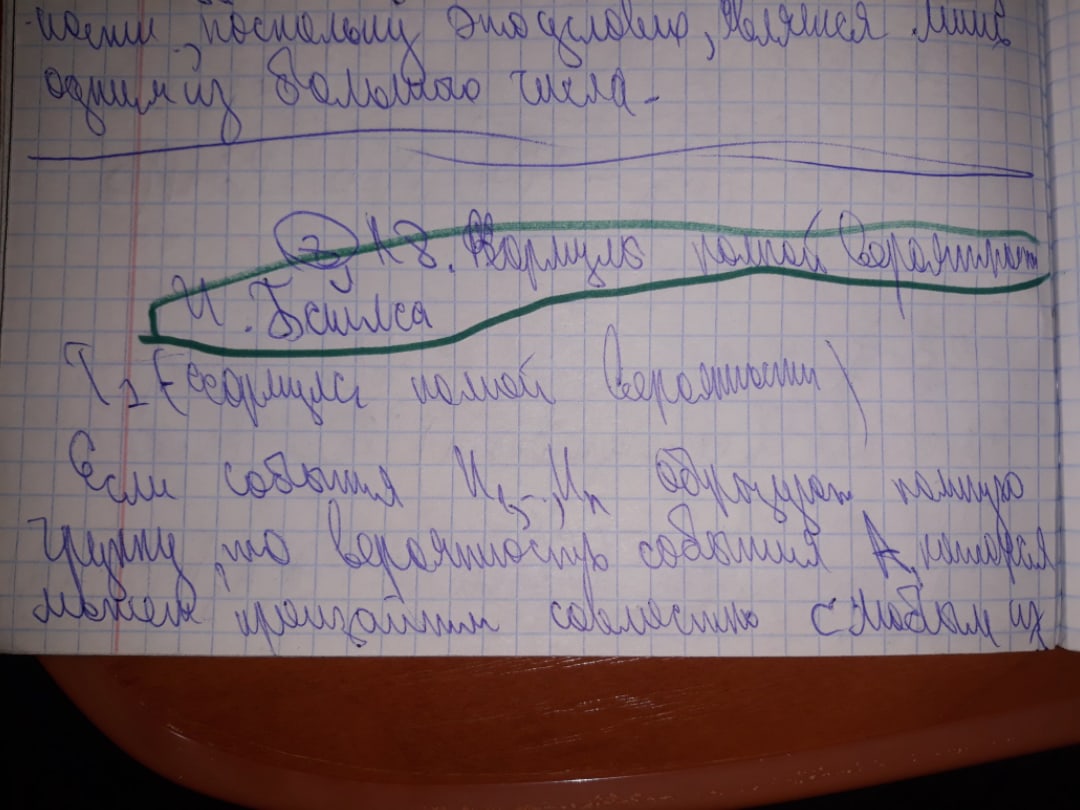 ности, поскольку это условие, является лишь
одним из большого числа.
2, 8. Формула полной вероятности
и. Бейлса
T 1 (формула полной вероятности)
Если события H1, ..., Hn образуют полную
группу, то вероятность события A, которая
может произойти совместно с любым из